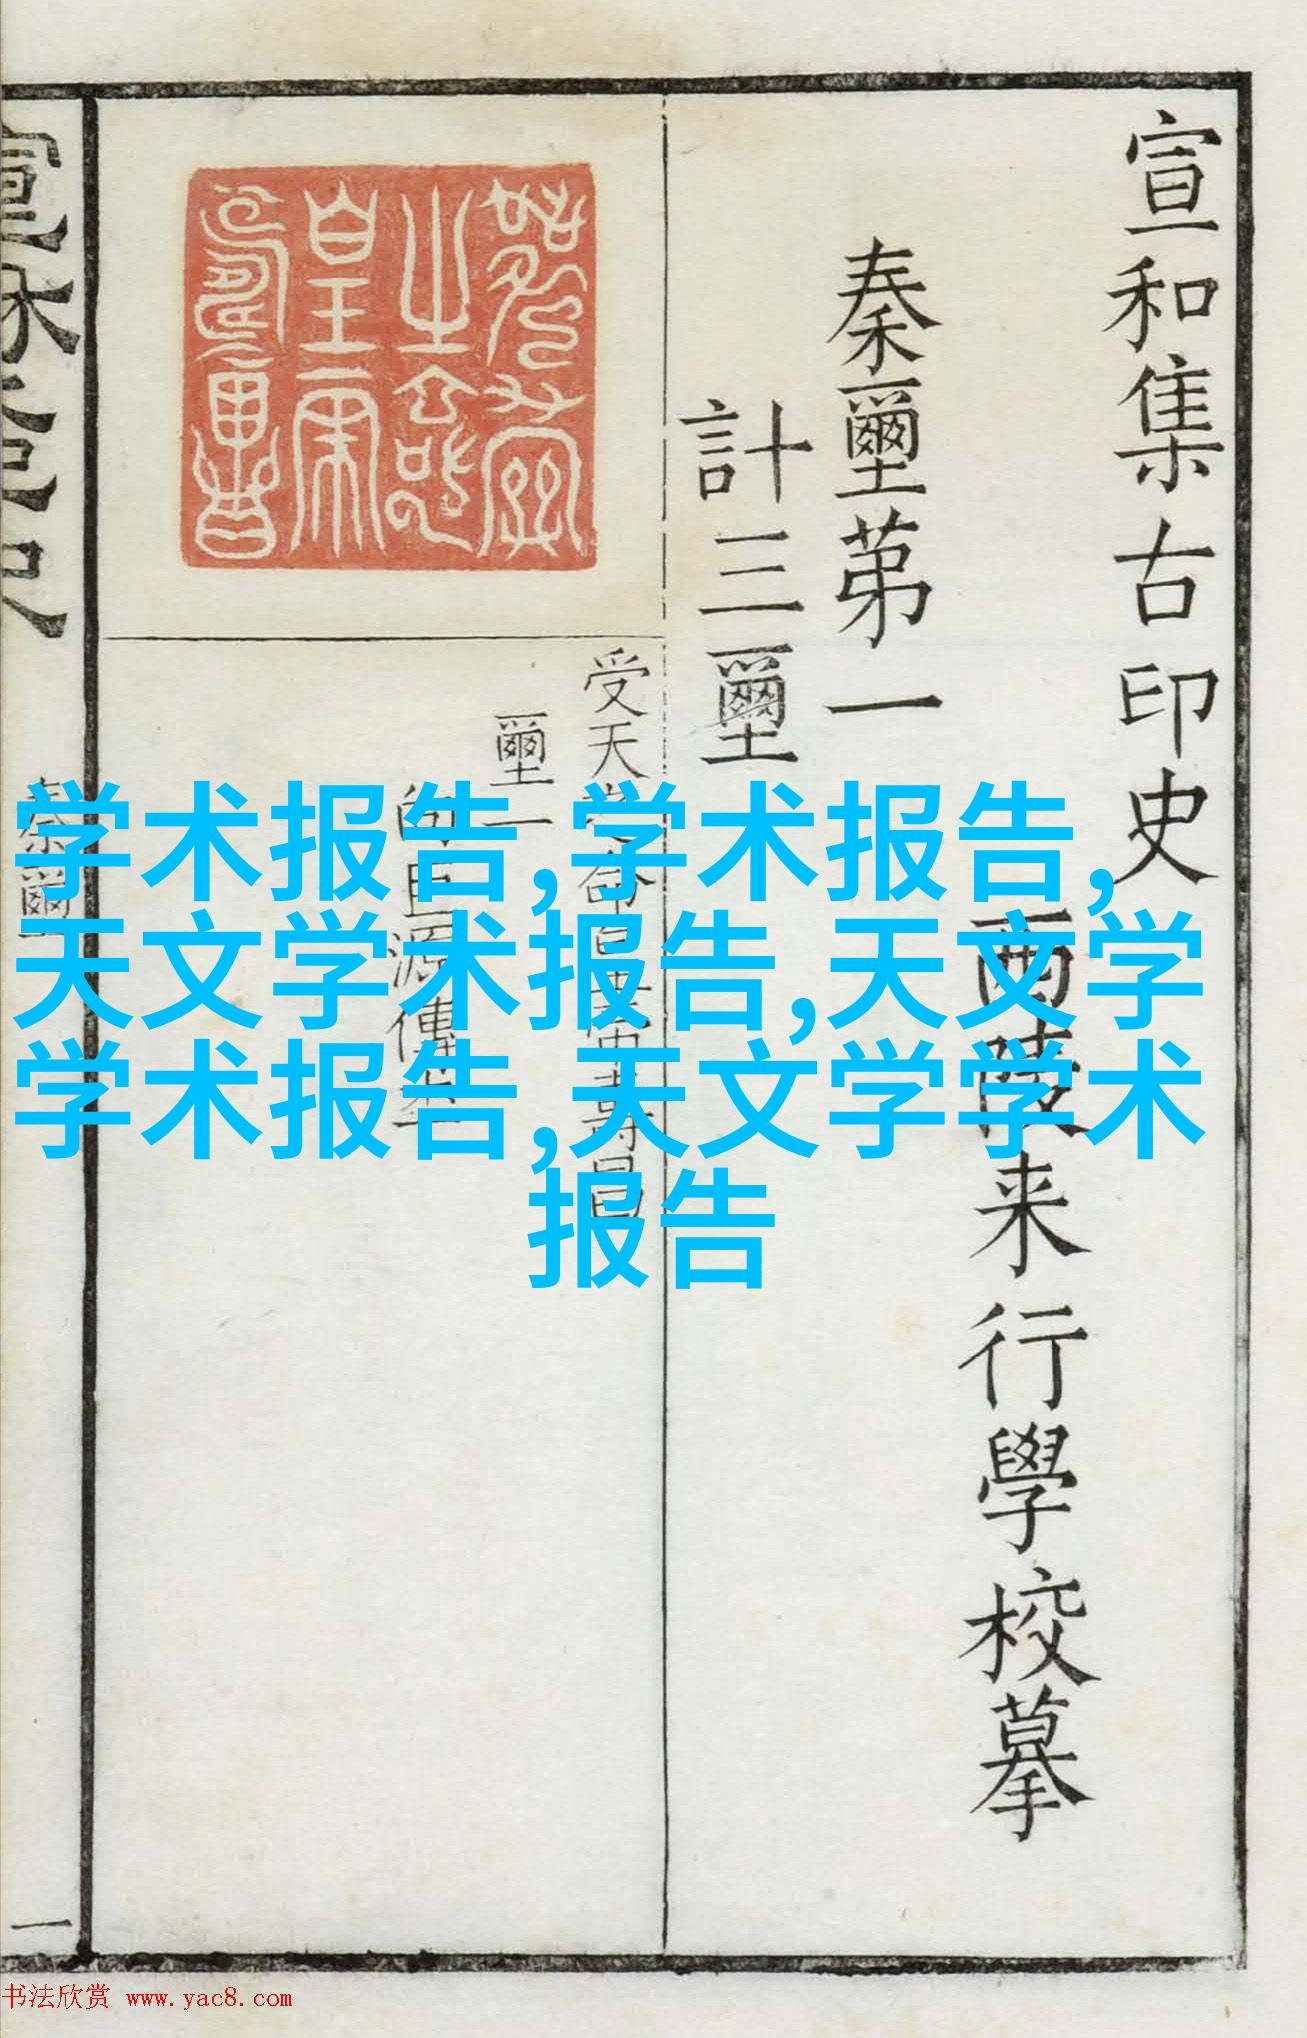 宣和集古印史
西陵来行學校摹
秦璽苐一
計三璽
受天
璽一
源傳
秦璽
一
学术报告,学术报告,
天文学术报告,天文学
学术报告,天文学学术
报告
书法欣赏 www.yac8.com